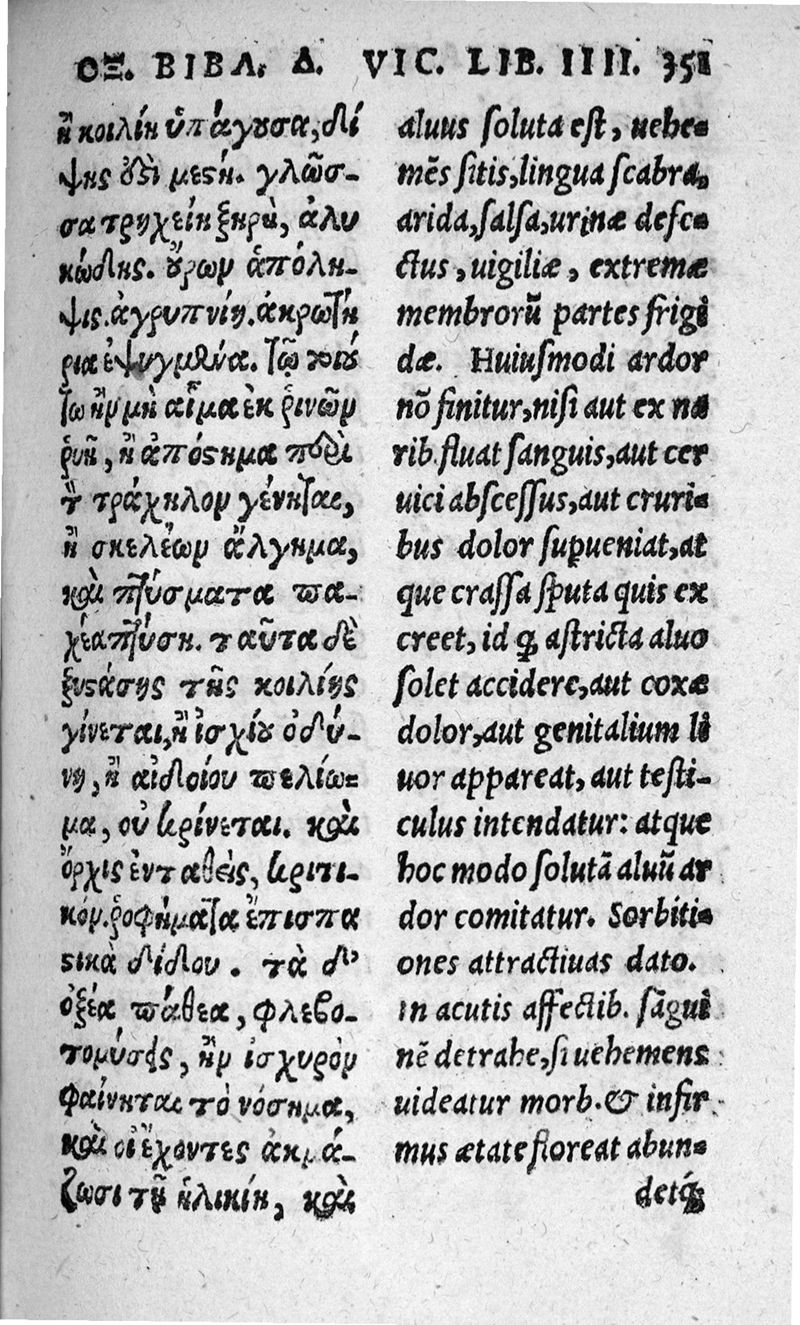 ΟΞ. ΒΙΒΛ. Δ. VIC. LIB. IIII. 351
ἢ κοιλίη ὑπάγουσα, δί
ψης ἐπὶ μεστή. γλῶσ-
σα τρηχείη ξηρὴ, ἁλυ
κώδης. οὔρων ἀπόλη-
ψις. ἀγρυπνίη. ἀκρωτή
ρια ἐψυγμένα. τῷ τοιού
τῳ ἢν μὴ αἷμα ἐκ ῥινῶν
ῥυῇ, ἢ ἀπόστημα περὶ
τὸν τράχηλον γένηται,
ἢ σκελέων ἄλγημα,
καὶ πτύσματα πα-
χέα πτύσῃ. ταῦτα δὲ
ξυστάσης τῆς κοιλίης
γίνεται, ἢ ἰσχίου ὀδύ-
νη, ἢ αἰδοίου πελίω-
μα, οὐ κρίνεται. καὶ
ὄρχις ἐνταθεὶς, κριτι-
κόν. ῥοφήματα ἐπισπα
στικὰ δίδου. τὰ δ'
ὀξέα πάθεα, φλεβο-
τομήσεις, ἢν ἰσχυρὸν
φαίνηται τὸ νόσημα,
καὶ οἱ ἔχοντες ἀκμά-
ζωσι τῇ ἡλικίῃ, καὶ
aluus soluta est, uehe-
mẽs sitis, lingua scabra,
arida, salsa, urinæ defe-
ctus, uigiliæ, extremæ
membrorũ partes frigi
dæ. Huiusmodi ardor
nõ finitur, nisi aut ex na
rib. fluat sanguis, aut cer
uici abscessus, aut cruri-
bus dolor superueniat, at
que crassa sputa quis ex
creet, id q̃ astricta aluo
solet accidere, aut coxæ
dolor, aut genitalium li
uor appareat, aut testi-
culus intendatur: atque
hoc modo solutã aluũ ar
dor comitatur. Sorbiti-
ones attractiuas dato.
in acutis affectib. sãgui
nẽ detrahe, si uehemens
uideatur morb. & infir
mus ætate floreat abun-
detq́;